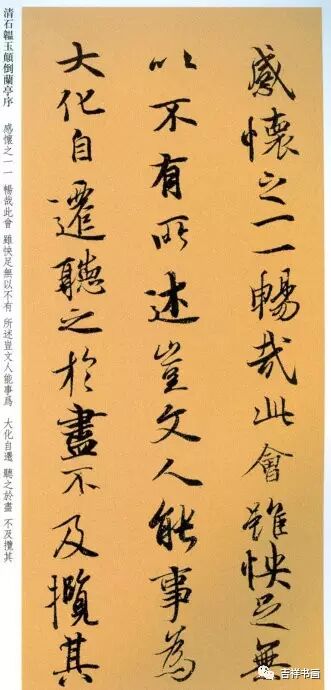 感懷之一一暢哉此會雖怏足無
以不有所述豈文人能事為
大化自遷聽之於盡不及攬其
清石韞玉顛倒蘭亭序 感懷之一一 暢哉此會 雖怏足無以不有 所述豈文人能事爲 大化自遷 聽之於盡 不及攬其
吉祥书画